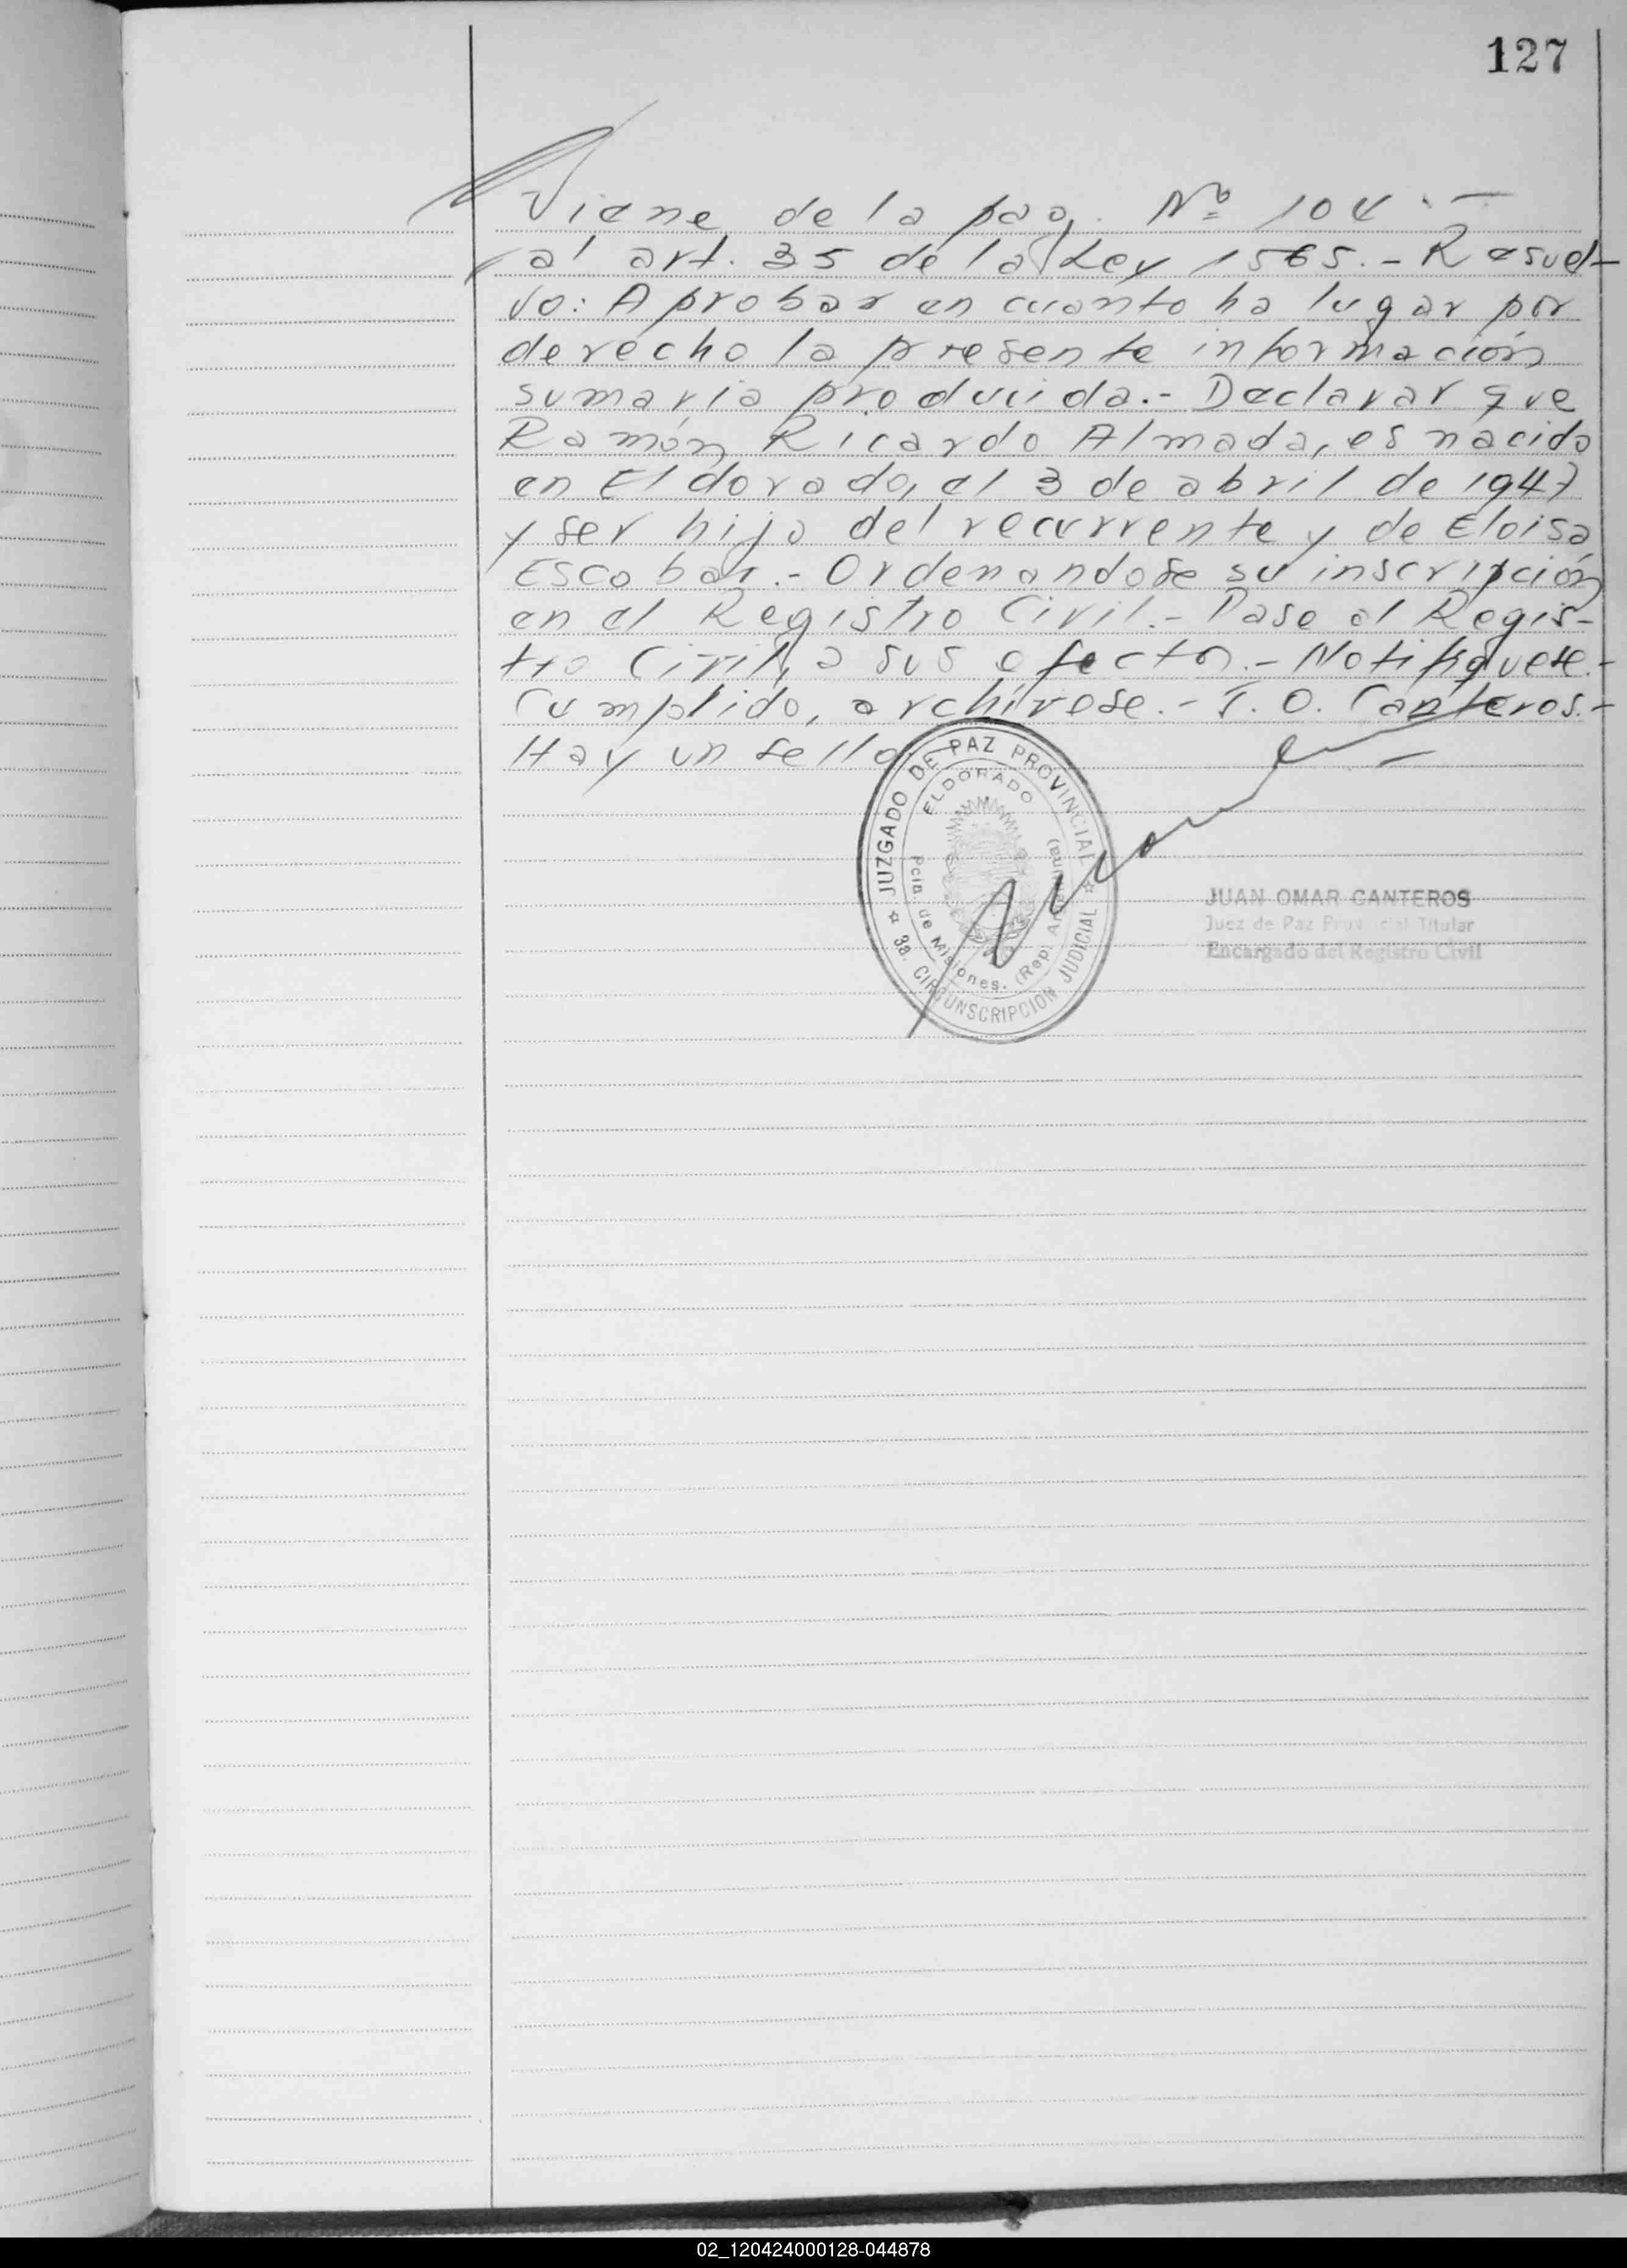 127
Viene de la pag. Nº 104.-
al art. 35 de la Ley 1565.- Resuel-
vo: Aprobar en cuanto ha lugar por
derecho la presente información
sumaria producida.- Declarar que
Ramón Ricardo Almada, es nacido
en Eldorado, el 3 de abril de 1947
y ser hijo del recurrente y de Eloisa
Escobar.- Ordenandose su inscripción
en el Registro Civil.- Pase al Regis-
tro Civil, a sus efectos.- Notifiquese.-
Cumplido, archívese.- J. O. Canteros.-
Hay un sello
JUZGADO DE PAZ PROVINCIAL
ELDORADO
Pcia. de Misiones. (Rep. Argentina)
3a. CIRCUNSCRIPCION JUDICIAL
JUAN OMAR CANTEROS
Juez de Paz Provincial Titular
Encargado del Registro Civil
02_120424000128-044878